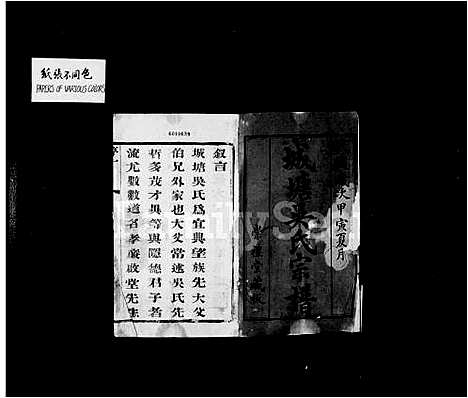 紙張不同色
PAPERS OF VARIOUS COLORS
6011639
歲次甲寅夏月
城塘吳氏宗譜
禮堂藏板
叙言
城塘吳氏為宜興望族先大父
伯兄外家也大父常述吳氏先
哲多茂才異等與隱德君子若
流尤數數道名孝廉啟堂先生